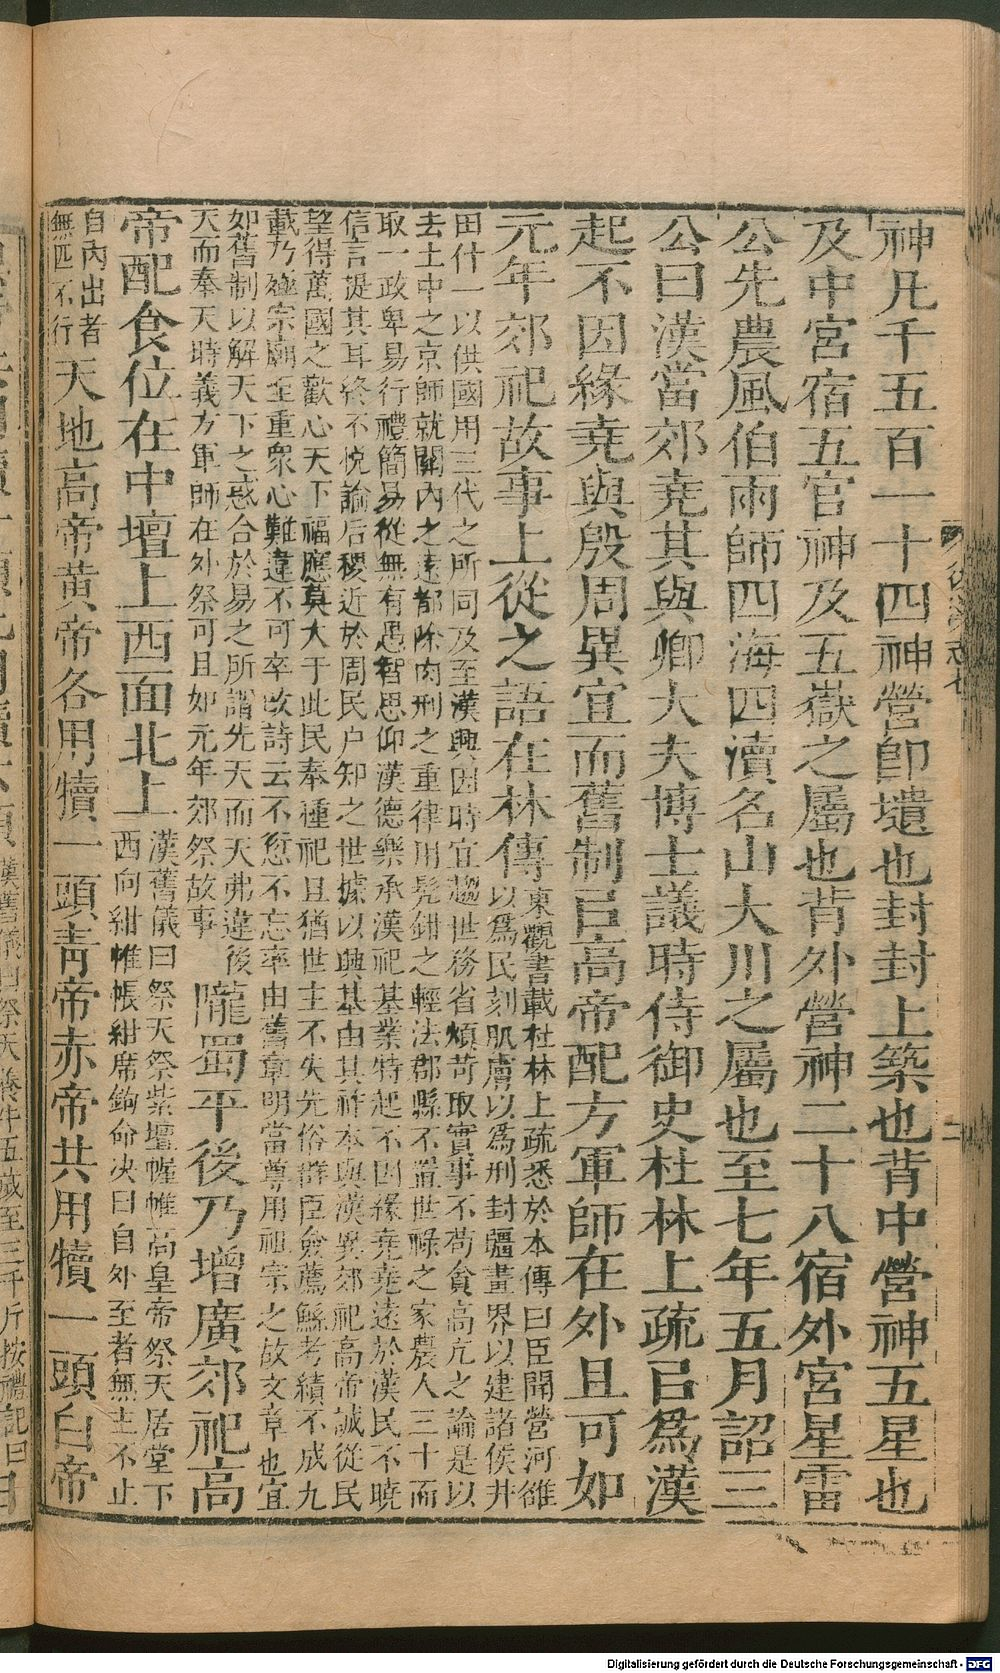 神凡千五百一十四神營卽壝也封封上築也背中營神五星也
及中宮宿五官神及五嶽之屬也背外營神二十八宿外宮星雷
公先農風伯雨師四海四瀆名山大川之屬也至七年五月詔三
公曰漢當郊堯其與卿大夫博士議時侍御史杜林上疏㠯爲漢
起不因緣堯與殷周異宜而舊制㠯高帝配方軍師在外且可如
元年郊祀故事上從之語在林傳
東觀書載杜林上疏悉於本傳曰臣聞營河雒
以爲民刻肌膚以爲刑封疆畫界以建諸侯井
田什一以供國用三代之所同及至漢興因時宜趨世務省煩苛取實事不苟貪高亢之論是以
去土中之京師就關內之遠都除肉刑之重律用髡鉗之輕法郡縣不置世祿之家農人三十而
取一政卑易行禮簡易從無有愚智思仰漢德樂承漢祀基業特起不因緣堯堯遠於漢民不曉
信言提其耳終不悅諭后稷近於周民户知之世據以興基由其祚本與漢異郊祀高帝誠從民
望得萬國之歡心天下福應莫大于此民奉種祀且猶世主不失先俗群臣僉薦鯀考績不成九
載乃殛宗廟至重衆心難違不可卒改詩云不愆不忘率由舊章明當尊用祖宗之故文章也宜
如舊制以解天下之惑合於易之所謂先天而天弗違後
天而奉天時義方軍師在外祭可且如元年郊祭故事
隴蜀平後乃增廣郊祀高
帝配食位在中壇上西面北上
漢舊儀曰祭天祭紫壇幄帷高皇帝祭天居堂下
西向紺帷帳紺席鉤命决曰自外至者無主不止
自內出者
無匹不行
天地高帝黄帝各用犢一頭靑帝赤帝共用犢一頭白帝
後漢志七
二
漢舊儀曰祭天養牛五歲至三千斤按禮記曰
Digitalisierung gefördert durch die Deutsche Forschungsgemeinschaft - DFG